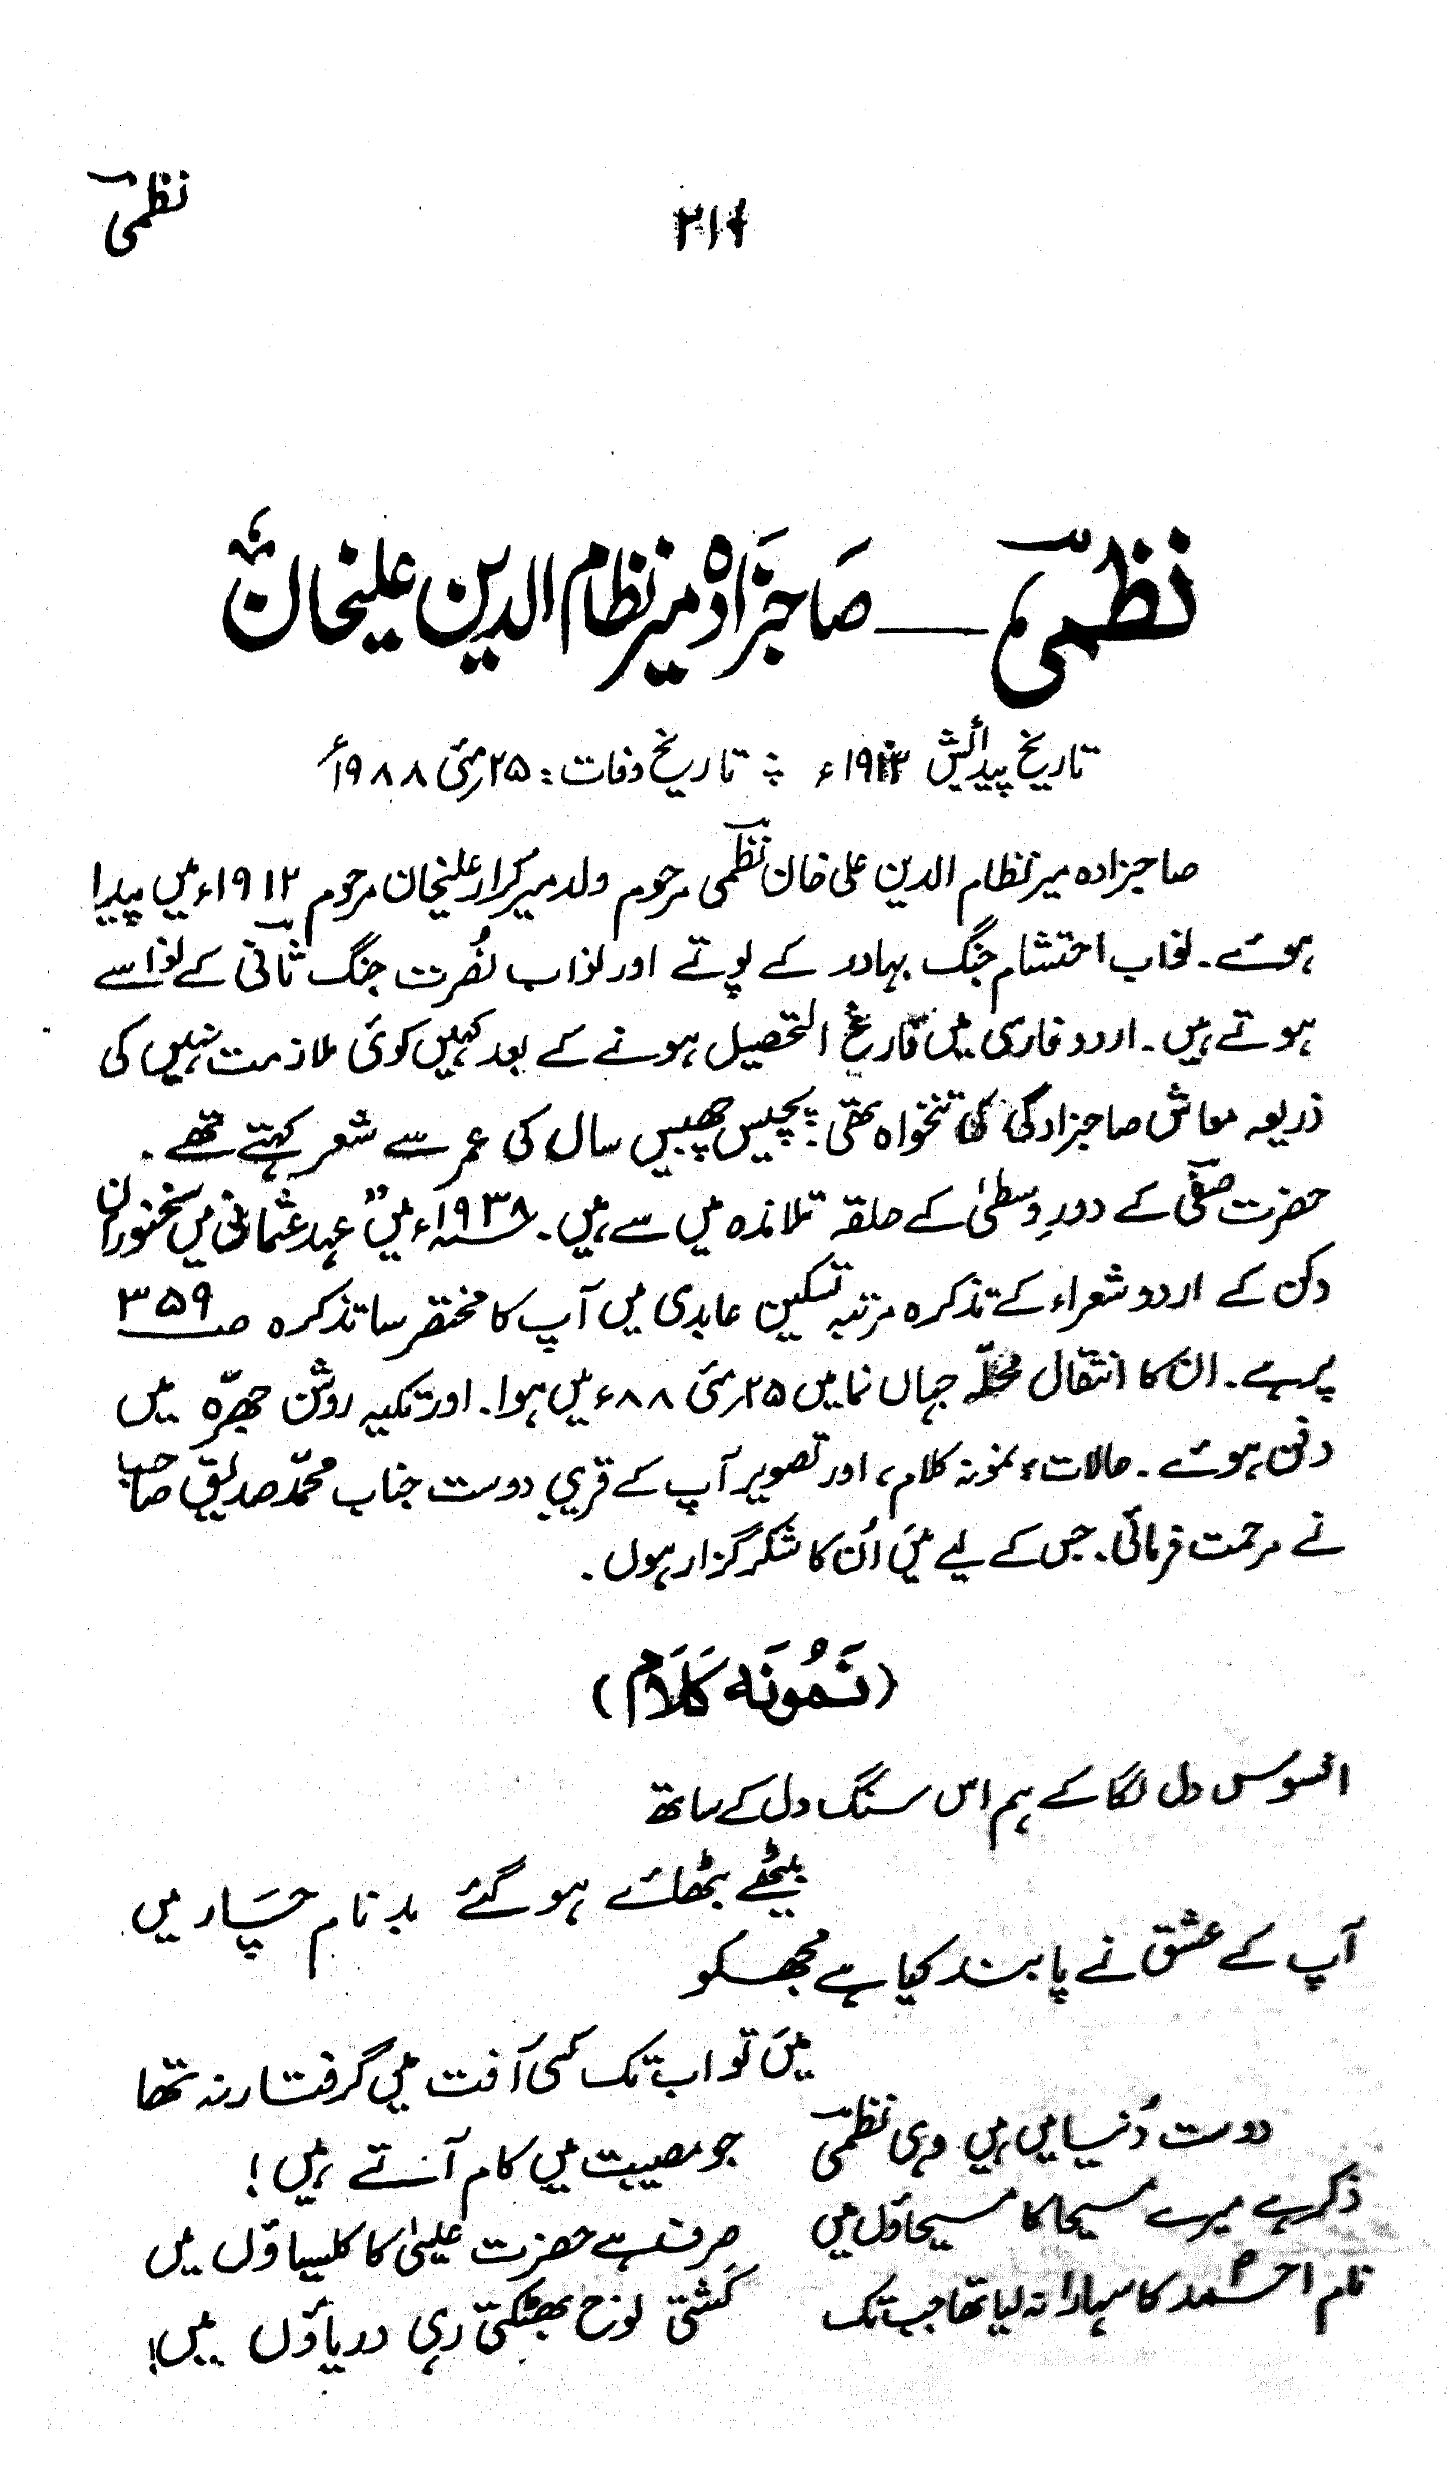 نظمیؔ
۲۱۶
نظمیؔ — صاحبزادہ میر نظام الدین علیخاںؒ
تاریخ پیدائش ۱۹۱۲ء ؞ تاریخ وفات : ۲۵ مئی ۱۹۸۸ء
صاحبزادہ میر نظام الدین علی خاں نظمیؔ مرحوم ولد میر کرار علیخان مرحوم ۱۹۱۲ء میں پیدا
ہوئے۔ نواب احتشام جنگ بہادر کے پوتے اور نواب نصُرت جنگ ثانی کے نواسے
ہوتے ہیں۔ اردو فارسی میں فارغ التحصیل ہونے کے بعد کہیں کوئی ملازمت نہیں کی
ذریعہ معاش صاحبزادگی کی تنخواہ تھی۔ پچیس چھبیس سال کی عمر سے شعر کہتے تھے۔
حضرت صفیؔ کے دورِ وسطیٰ کے حلقہ تلامذہ میں سے ہیں۔ ۱۹۳۸ء میں ”عہد عثمانی میں سخنوران
دکن کے اردو شعراء کے تذکرہ مرتبہ تسکین عابدی میں آپ کا مختصر سا تذکرہ صـ ۳۵۹
پر ہے۔ ان کا انتقال محلّہ جہاں نما میں ۲۵ مئی ۸۸ء میں ہوا۔ اور تکیہ روشن چھرّہ میں
دفن ہوئے۔ حالات، نمونہ کلام، اور تصویر آپ کے قریبی دوست جناب محمّد صدیق صاحب
نے مرحمت فرمائی۔ جس کے لیے میں اُن کا شکر گزار ہوں۔
(نَمُونَہ کَلَام)
افسوس دل لگا کے ہم اس سنگ دل کے ساتھ
بیٹھے بٹھائے ہو گئے بدنام چَار میں
آپ کے عشق نے پابند کیا ہے مجھکو
میں تو اب تک کسی آفت میں گرفتار نہ تھا
دوست دُنیا میں ہیں وہی نظمیؔ جو مصیبت میں کام آتے ہیں!
ذکر ہے میرے مسیحا کا مسیحاؤں میں صرف ہے حضرت عیسیٰ کا کلیساؤں میں
نام احمدؐ کا سہارا نہ لیا تھا جب تک کَشتی نوح بھٹکتی رہی دریاؤں میں!